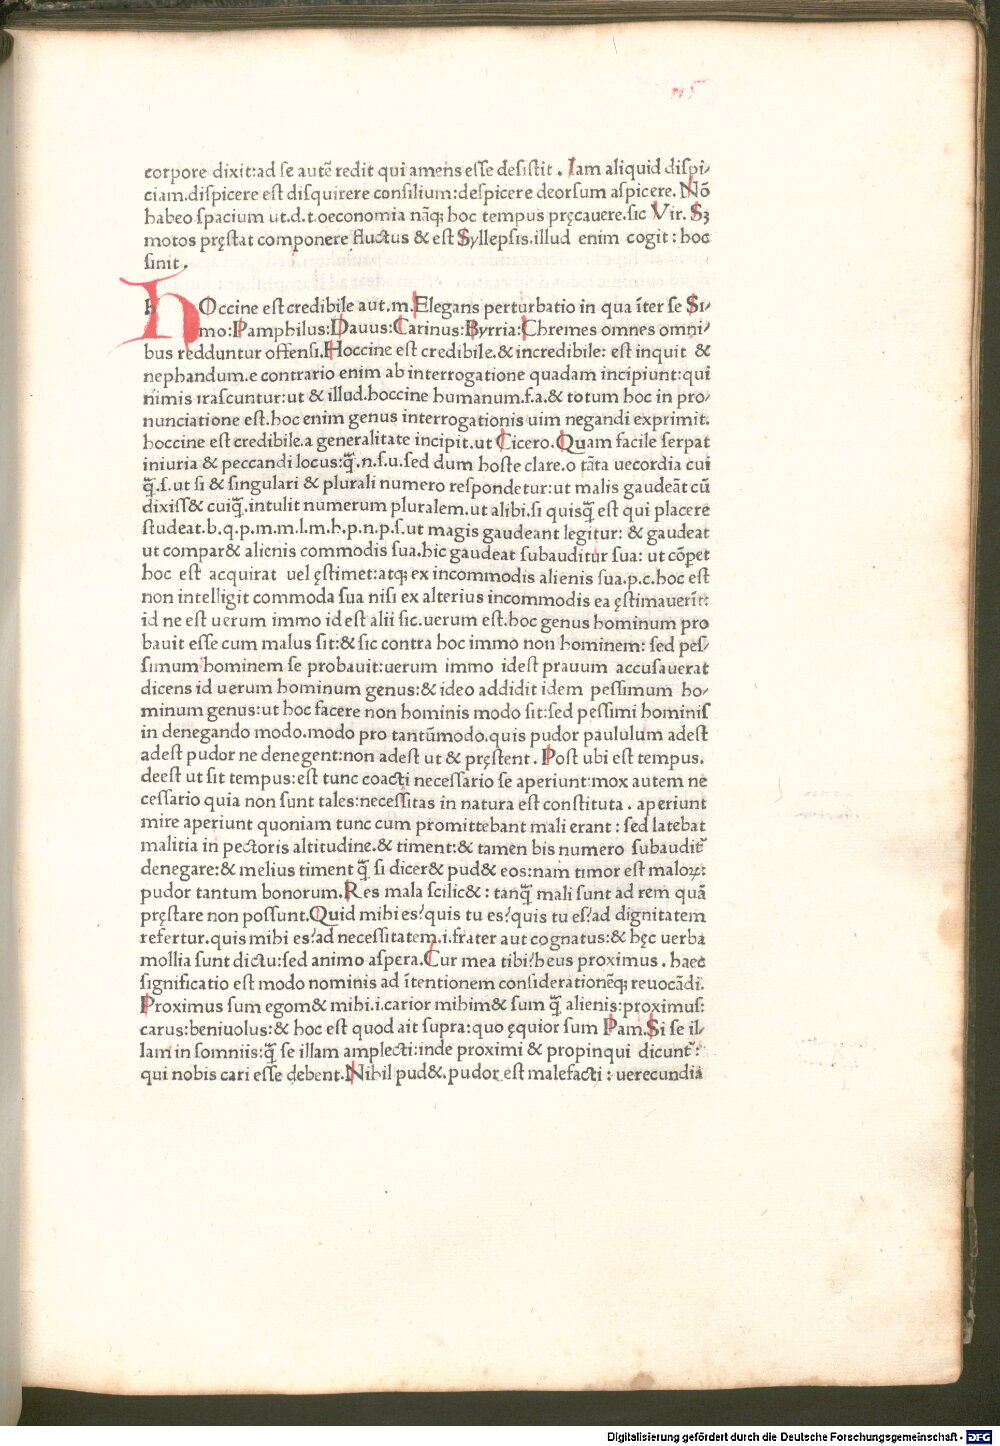 corpore dixit:ad se autē redit qui amens esse desistit . Iam aliquid dispi/
ciam.dispicere est disquirere consilium:despicere deorsum aspicere. Nō
habeo spacium ut.d.t.oeconomia nāq; hoc tempus pręcauere.sic Vir. Sꝫ
motos pręstat componere fluctus & est Syllepsis.illud enim cogit : hoc
sinit .
HOccine est credibile aut.m.Elegans perturbatio in qua īter se Si/
mo:Pamphilus:Dauus:Carinus:Byrria:Chremes omnes omni/
bus redduntur offensi.Hoccine est credibile.& incredibile: est inquit &
nephandum.e contrario enim ab interrogatione quadam incipiunt:qui
nimis irascuntur:ut & illud.hoccine humanum.f.a.& totum hoc in pro/
nunciatione est.hoc enim genus interrogationis uim negandi exprimit.
hoccine est credibile.a generalitate incipit.ut Cicero.Quam facile serpat
iniuria & peccandi locus:q̄.n.f.u.sed dum hoste clare.o tāta uecordia cui
q̄.s.ut si & singulari & plurali numero respondetur:ut malis gaudeāt cū
dixiss& cuiq̄.intulit numerum pluralem.ut alibi.si quisq̄ est qui placere
studeat.b.q.p.m.m.l.m.h.p.n.p.s.ut magis gaudeant legitur: & gaudeat
ut compar& alienis commodis sua.hic gaudeat subauditur sua: ut cōpet
hoc est acquirat uel ęstimet:atq; ex incommodis alienis sua.p.c.hoc est
non intelligit commoda sua nisi ex alterius incommodis ea ęstimauerīt:
id ne est uerum immo id est alii sic.uerum est.hoc genus hominum pro
bauit esse cum malus sit:& sic contra hoc immo non hominem: sed pes/
simum hominem se probauit:uerum immo idest prauum accusauerat
dicens id uerum hominum genus:& ideo addidit idem pessimum ho/
minum genus:ut hoc facere non hominis modo sit:sed pessimi hominis
in denegando modo.modo pro tantūmodo.quis pudor paululum adest
adest pudor ne denegent:non adest ut & pręstent . Post ubi est tempus.
deest ut sit tempus:est tunc coacti necessario se aperiunt:mox autem ne
cessario quia non sunt tales:necessitas in natura est constituta . aperiunt
mire aperiunt quoniam tunc cum promittebant mali erant : sed latebat
malitia in pectoris altitudine.& timent:& tamen bis numero subaudit᷑
denegare:& melius timent q̄ si dicer& pud& eos:nam timor est maloꝝ:
pudor tantum bonorum.Res mala scilic& : tanq̄ mali sunt ad rem quā
pręstare non possunt.Quid mihi es?quis tu es?quis tu es?ad dignitatem
refertur.quis mihi es?ad necessitatem.i.frater aut cognatus:& hęc uerba
mollia sunt dictu:sed animo aspera.Cur mea tibi?heus proximus . haec
significatio est modo nominis ad ītentionem considerationēq; reuocādi.
Proximus sum egom& mihi.i.carior mihim& sum q̄ alienis:proximus:
carus:beniuolus:& hoc est quod ait supra:quo ęquior sum Pam.Si se il/
lam in somniis:q̄ se illam amplecti:inde proximi & propinqui dicunt᷑:
qui nobis cari esse debent.Nihil pud&.pudor est malefacti : uerecundia
Digitalisierung gefördert durch die Deutsche Forschungsgemeinschaft - DFG